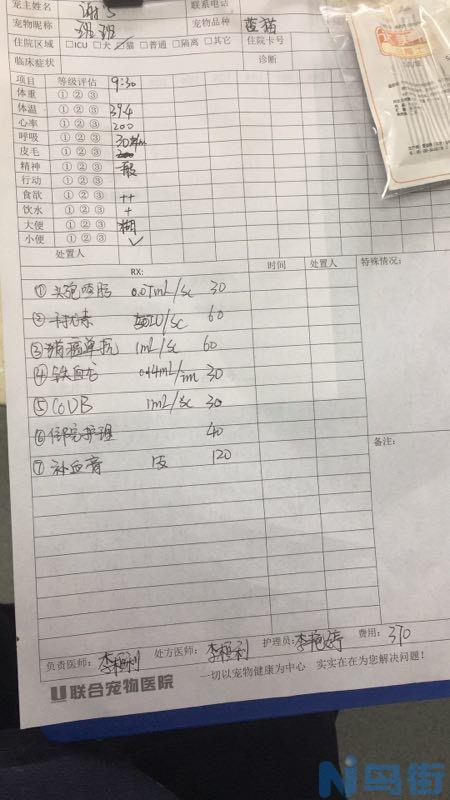 宠主姓名 谢 联系电话
宠物昵称 班班 宠物品种 蓝猫
住院区域 □ICU □犬 □猫 □普通 □隔离 □其它 住院卡号
临床症状 诊断
项目 等级评估 9:30
体重 ① ② ③
体温 ① ② ③ 39.4
心率 ① ② ③ 200
呼吸 ① ② ③ 30
皮毛 ① ② ③
精神 ① ② ③ 一般
行动 ① ② ③
食欲 ① ② ③ ++
饮水 ① ② ③ +
大便 ① ② ③ 糊
小便 ① ② ③ ✓
处置人
RX: 时间 处置人 特殊情况:
① 头孢 0.07mL/sc 30
② /sc 60
③ 猫瘟单抗 1mL/sc 60
④ 铁血龙 0.14mL/im 30
⑤ CoDB 1mL/sc 30
⑥ 住院护理 40
备注:
⑦ 补血膏 1支 120
负责医师: 处方医师: 护理员: 费用: 370
联合宠物医院 一切以宠物健康为中心 实实在在为您解决问题!
鸟街